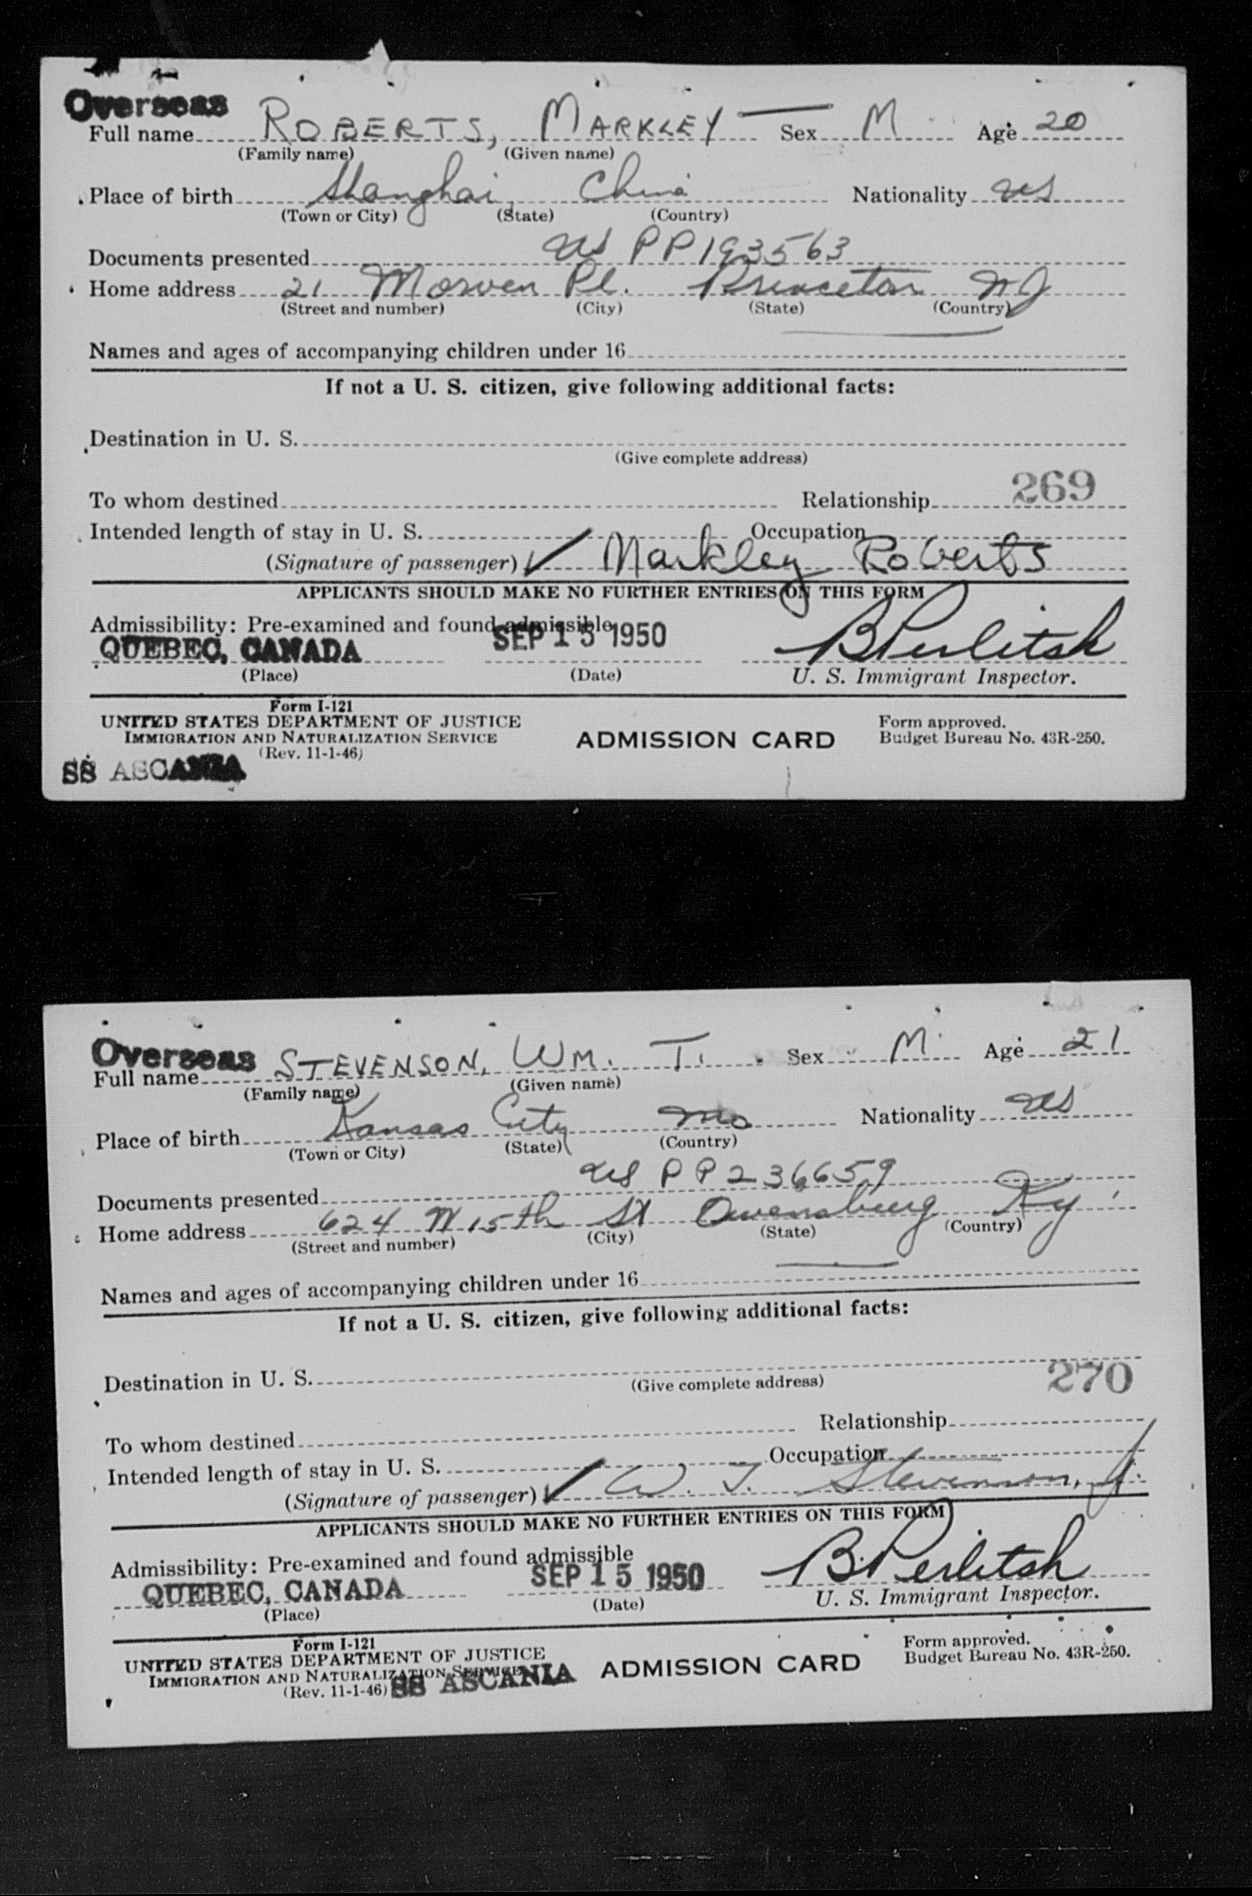 Overseas
Full name ROBERTS, MARKLEY — Sex M Age 20
(Family name) (Given name)
Place of birth Shanghai, China Nationality US
(Town or City) (State) (Country)
Documents presented US PP193563
Home address 21 Morven Pl. Princeton NJ
(Street and number) (City) (State) (Country)
Names and ages of accompanying children under 16
If not a U. S. citizen, give following additional facts:
Destination in U. S.
(Give complete address)
269
To whom destined Relationship
Intended length of stay in U. S. Occupation
(Signature of passenger) ✓ Markley Roberts
APPLICANTS SHOULD MAKE NO FURTHER ENTRIES ON THIS FORM
Admissibility: Pre-examined and found admissible
QUEBEC, CANADA SEP 15 1950 B Perlitsh
(Place) (Date) U. S. Immigrant Inspector.
Form I-121
UNITED STATES DEPARTMENT OF JUSTICE
IMMIGRATION AND NATURALIZATION SERVICE
(Rev. 11-1-46)
ADMISSION CARD
Form approved.
Budget Bureau No. 43R-250.
SS ASCANIA
Overseas
Full name STEVENSON, WM. T. Sex M Age 21
(Family name) (Given name)
Place of birth Kansas City Mo Nationality US
(Town or City) (State) (Country)
Documents presented US PP236659
Home address 624 W 15th St Owensburg Ky
(Street and number) (City) (State) (Country)
Names and ages of accompanying children under 16
If not a U. S. citizen, give following additional facts:
Destination in U. S.
(Give complete address)
270
To whom destined Relationship
Intended length of stay in U. S. Occupation
(Signature of passenger) ✓ W. T. Stevenson, Jr.
APPLICANTS SHOULD MAKE NO FURTHER ENTRIES ON THIS FORM
Admissibility: Pre-examined and found admissible
QUEBEC, CANADA SEP 15 1950 B. Perlitsh
(Place) (Date) U. S. Immigrant Inspector.
Form I-121
UNITED STATES DEPARTMENT OF JUSTICE
IMMIGRATION AND NATURALIZATION SERVICE
(Rev. 11-1-46) SS ASCANIA
ADMISSION CARD
Form approved.
Budget Bureau No. 43R-250.